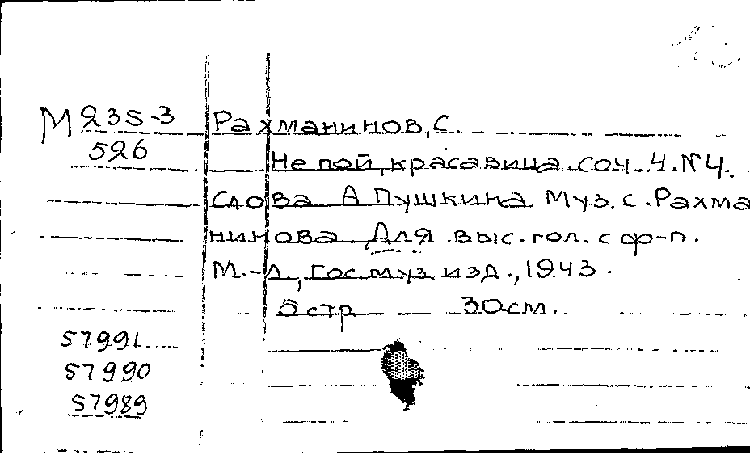 М 235-3
526
Рахманинов, С.
Не пой, красавица. соч. 4. № 4.
Слова А Пушкина Муз. с. Рахма
нинова Для выс. гол. с ф-п.
М.-Л, Гос муз изд., 1943.
5 стр 30см.
57991
57990
57989